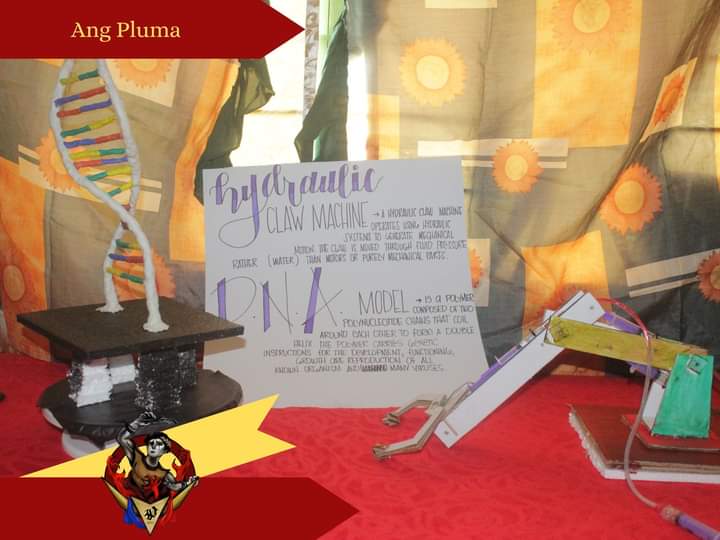 Ang Pluma
hydraulic
CLAW MACHINE → A HYDRAULIC CLAW MACHINE
OPERATES USING HYDRAULIC
SYSTEMS TO GENERATE MECHANICAL
MOTION THE CLAW IS MOVED THROUGH FLUID PRESSURE
RATHER (WATER) THAN MOTORS OR PURELY MECHANICAL PARTS.
D.N.A. MODEL → IS A POLYMER
COMPOSED OF TWO
POLYNUCLEOTIDE CHAINS THAT COIL
AROUND EACH OTHER TO FORM A DOUBLE
HELIX THE POLYMER CARRIES GENETIC
INSTRUCTIONS FOR THE DEVELOPMENT, FUNCTIONING,
GROWTH AND REPRODUCTION OF ALL
KNOWN ORGANISM AND MANY VIRUSES.